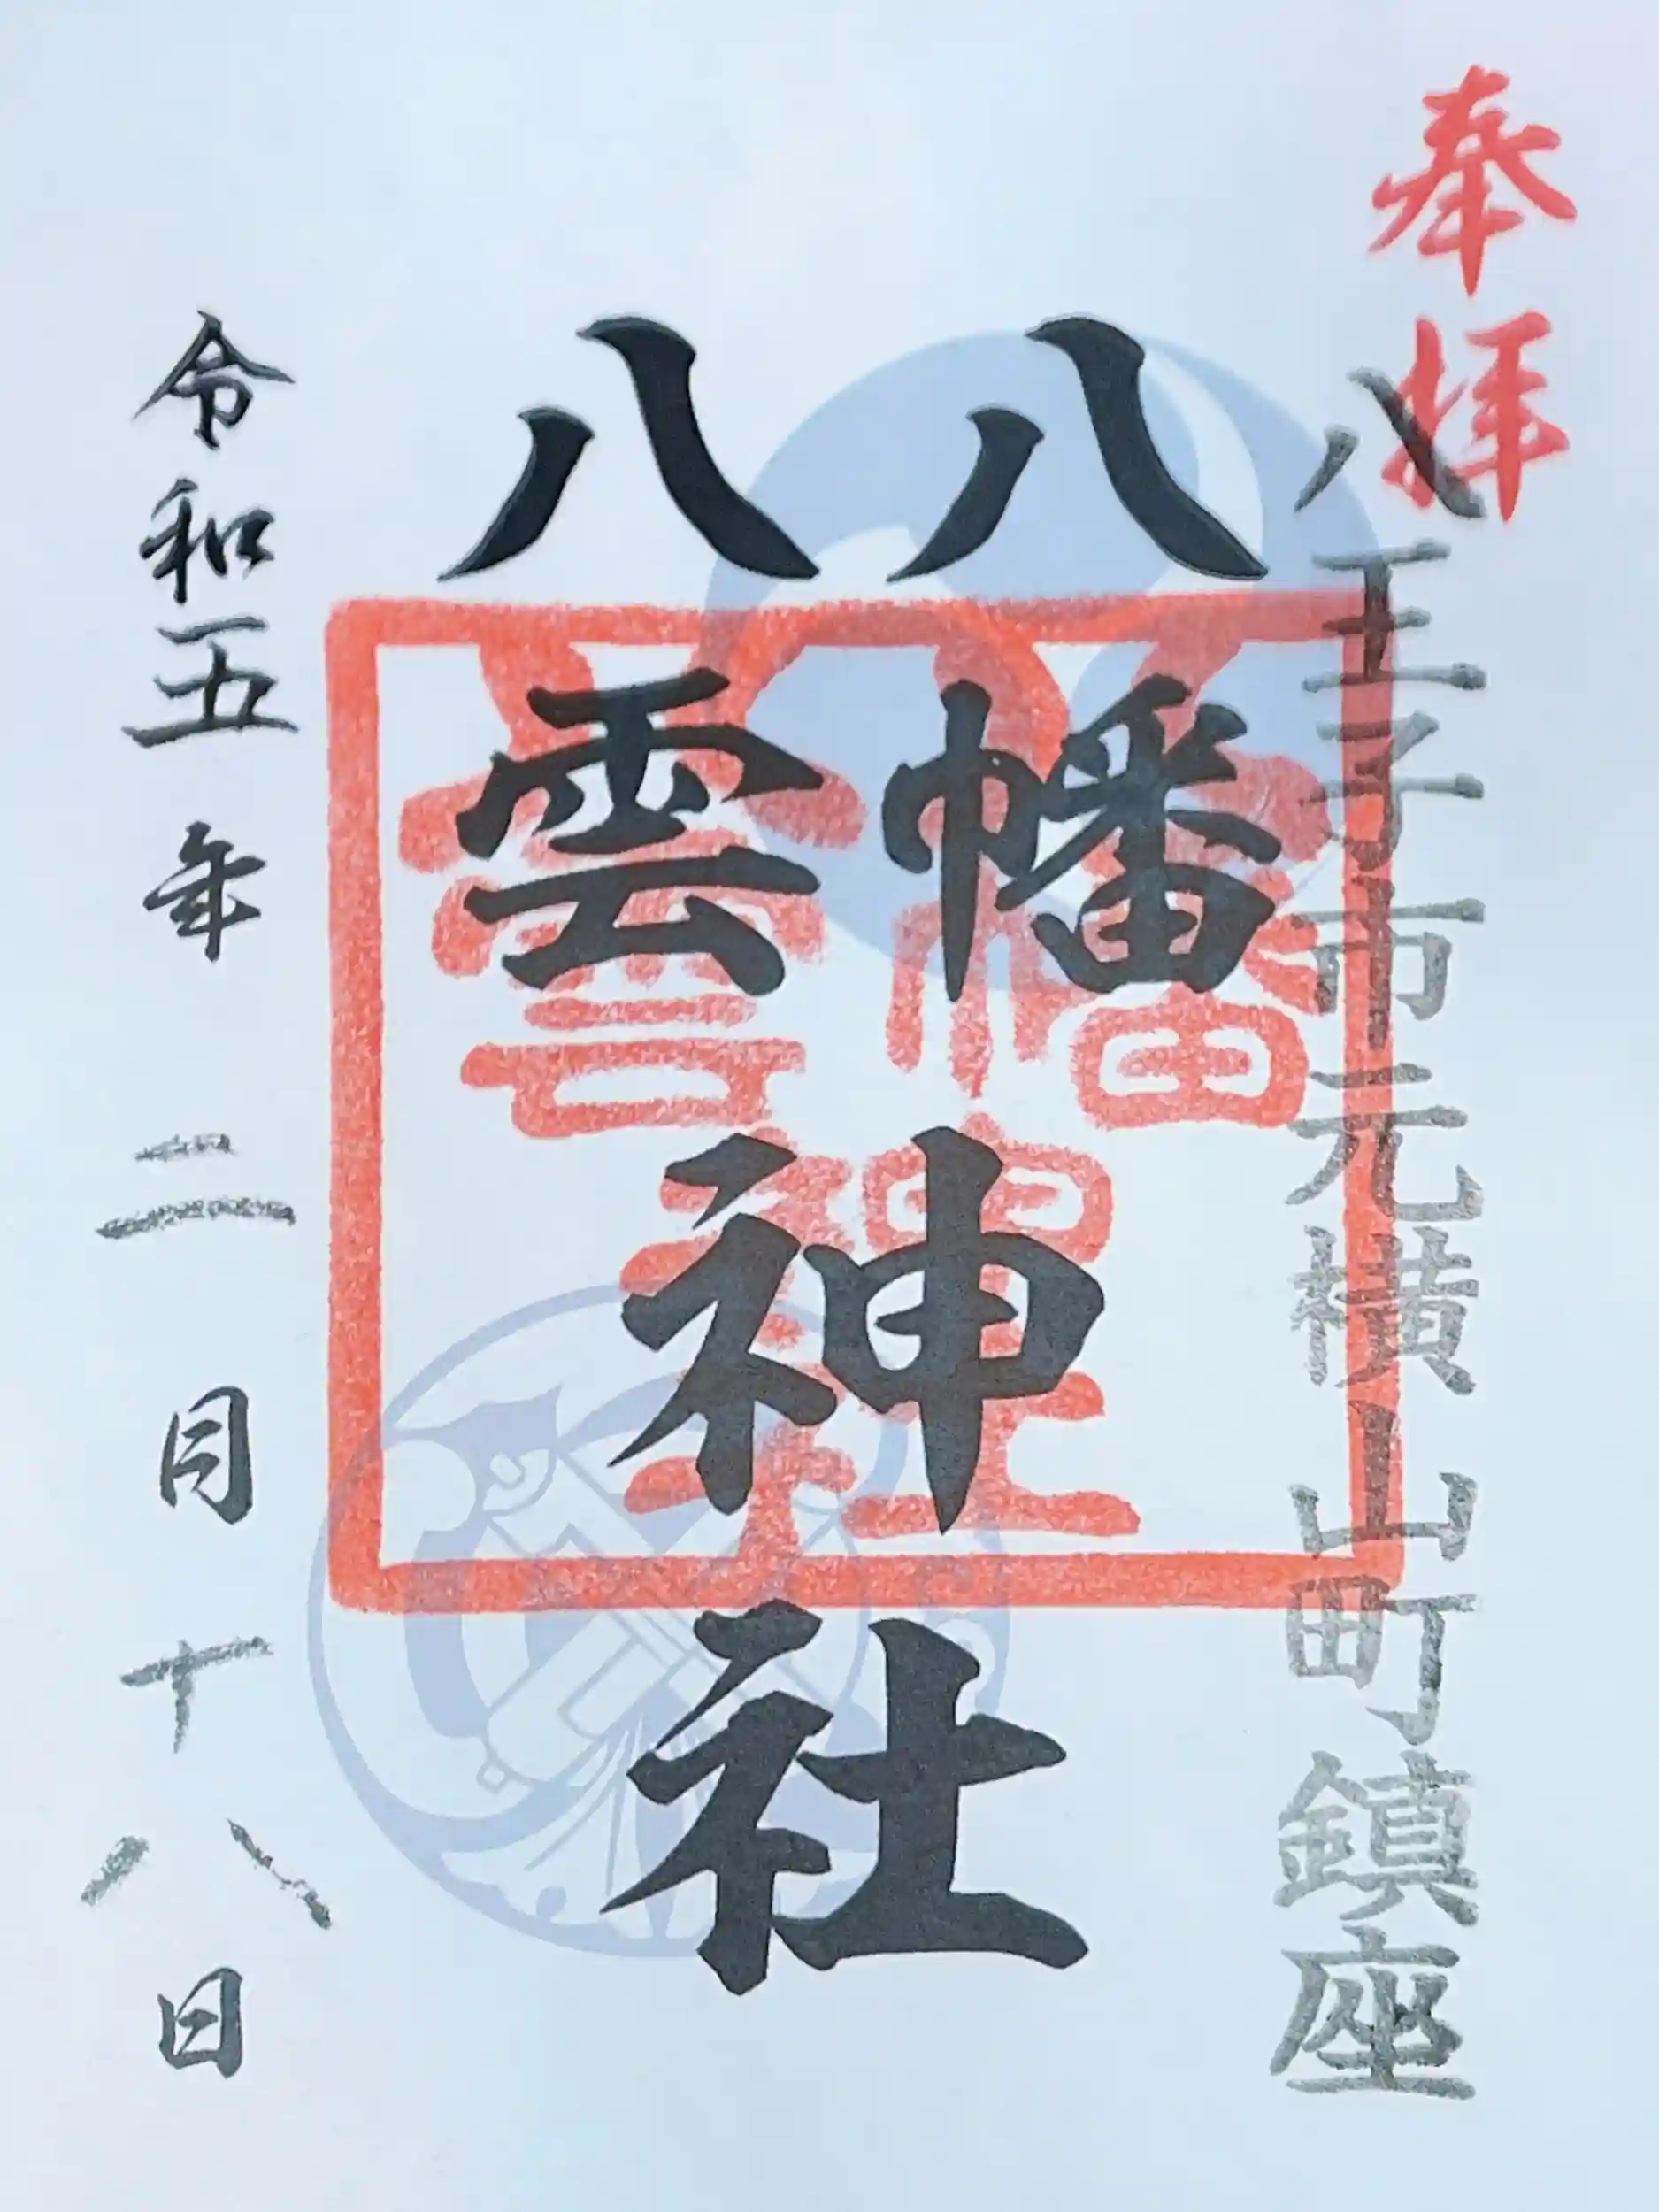 奉拝
八王子市元横山町鎮座
八幡
八雲
神社
八幡
八雲
神社
令和五年二月十八日